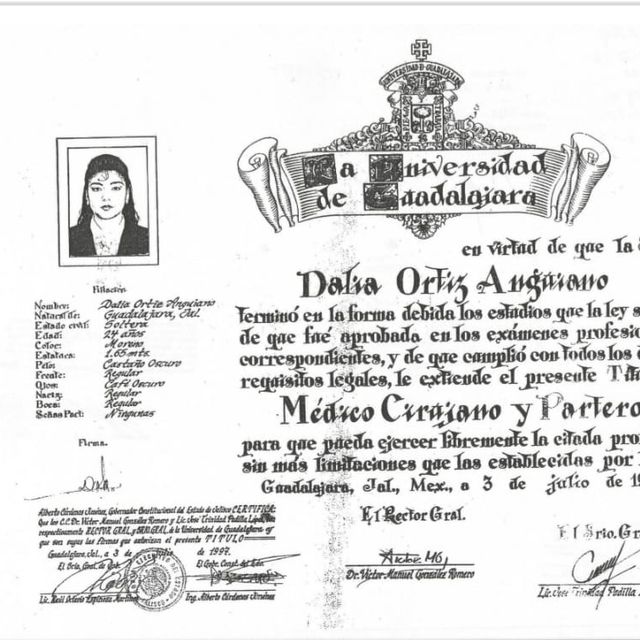 La Universidad
de Guadalajara
en virtud de que la
Dalia Ortiz Anguiano
terminó en la forma debida los estudios que la ley s
de que fué aprobada en los exámenes profesio
correspondientes, y de que cumplió con todos los
requisitos legales, le extiende el presente Tít
Médico Cirujano y Partero
para que pueda ejercer libremente la citada pro
sin más limitaciones que las establecidas por l
Guadalajara, Jal., Mex., a 3 de julio de 19
El Rector Gral.
Dr. Víctor Manuel González Romero
El Srio. Gra
Lic. José Trinidad Padilla
Filiación
Nombre: Dalia Ortiz Anguiano
Natural de: Guadalajara, Jal.
Estado civil: Soltera
Edad: 24 años
Color: Moreno
Estatura: 1.65 mts.
Pelo: Castaño Oscuro
Frente: Regular
Ojos: Café Oscuro
Nariz: Regular
Boca: Regular
Señas Part: Ningunas
Firma.
Alberto Cárdenas Jiménez, Gobernador Constitucional del Estado de Jalisco CERTIFICA:
Que los C.C. Dr. Víctor Manuel González Romero y Lic. José Trinidad Padilla López, son
respectivamente RECTOR GRAL. y SRIO. GRAL. de la Universidad de Guadalajara y
que son suyas las Firmas que autorizan el presente TITULO
Guadalajara, Jal., a 3 de julio de 1997.
El Srio. Gral. de Gob. El Gobr. Const. del Edo.
Lic. Raúl Octavio Espinoza Martínez Ing. Alberto Cárdenas Jiménez